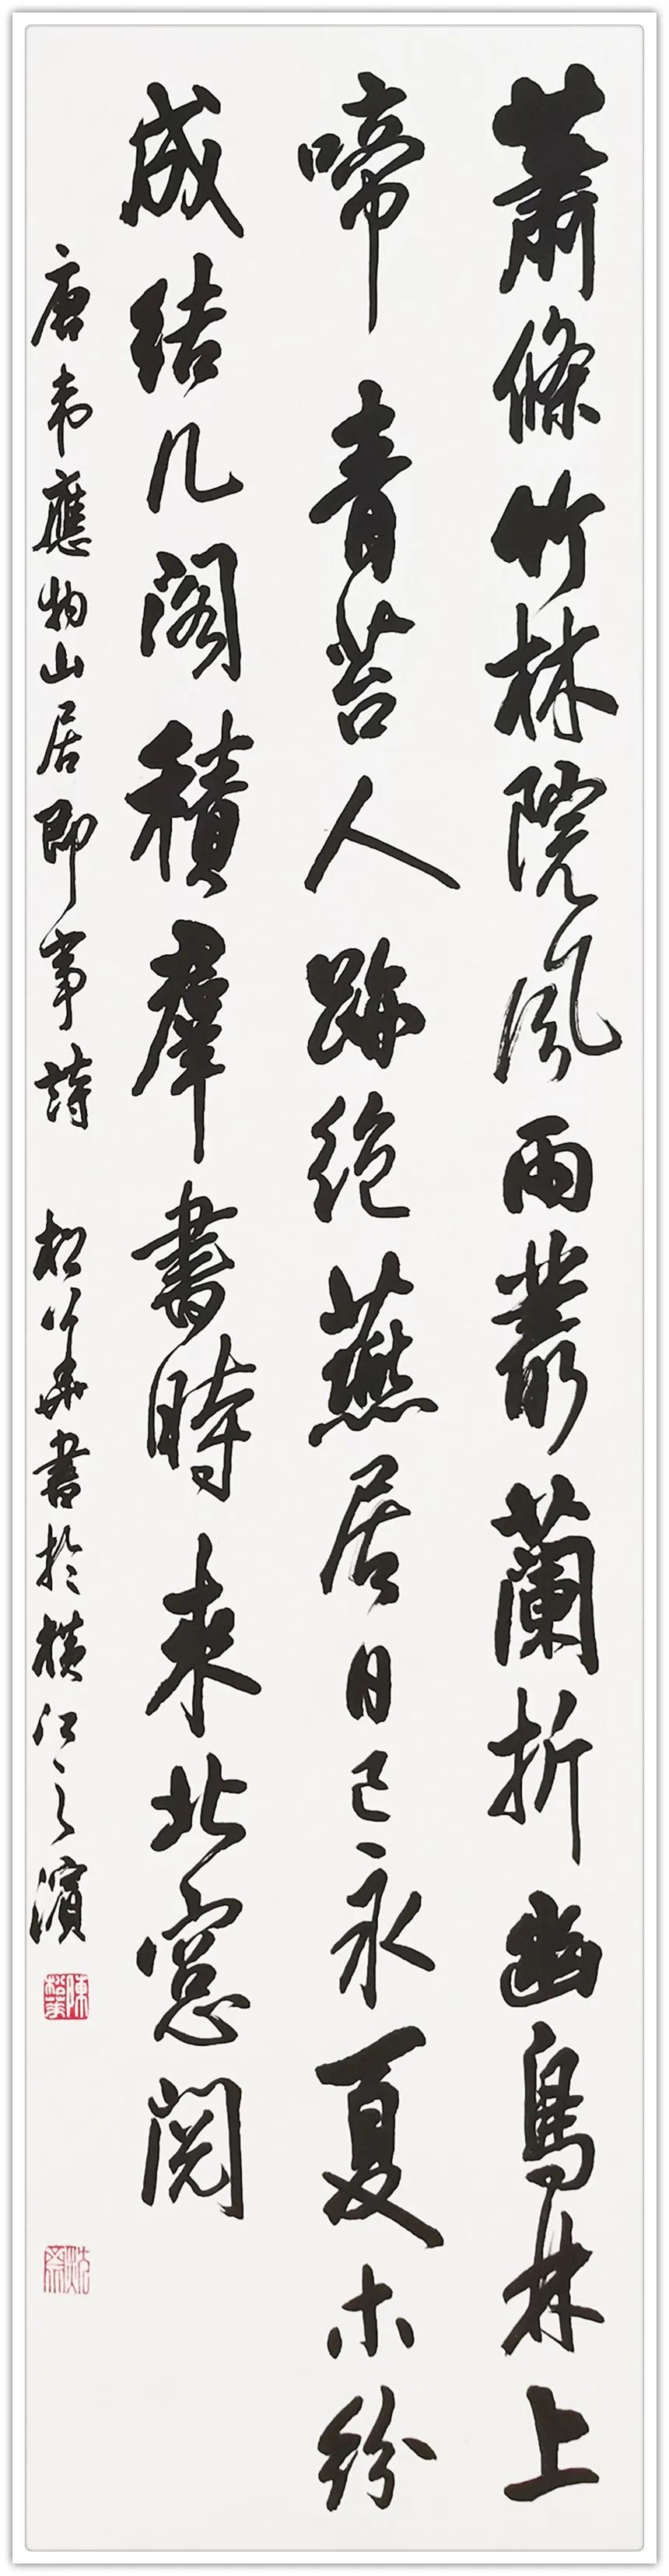 蕭條竹林院風雨叢蘭折幽鳥林上
啼青苔人跡絕燕居日已永夏木紛
成結几阁積羣書時来北窓閱
唐韦應物山居即事詩 松華書於横江之濱